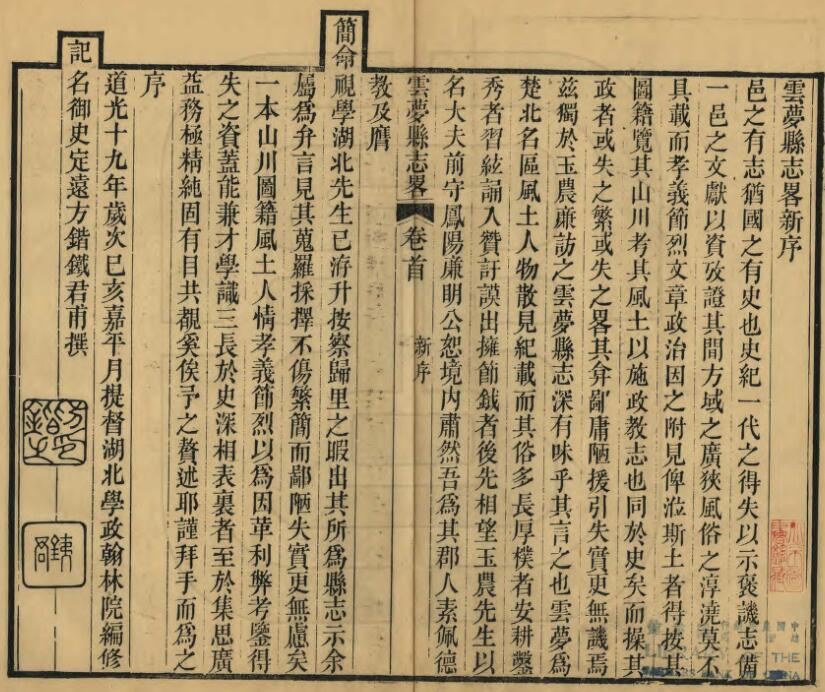 雲夢縣志畧新序
邑之有志猶國之有史也史紀一代之得失以示褒譏志備
一邑之文獻以資攷證其間方域之廣狹風俗之淳澆莫不
具載而孝義節烈文章政治因之附見俾涖斯土者得按其
圖籍覽其山川考其風土以施政教志也同於史矣而操其
政者或失之繁或失之畧其弇鄙庸陋援引失實更無譏焉
茲獨於玉農亷訪之雲夢縣志深有味乎其言之也雲夢為
楚北名區風土人物散見紀載而其俗多長厚樸者安耕鑿
秀者習絃誦入贊訏謨出擁節鉞者後先相望玉農先生以
名大夫前守鳳陽亷明公恕境内肅然吾為其郡人素佩德
雲夢縣志畧 卷首 新序
教及膺
簡命視學湖北先生已洊升按察歸里之暇出其所為縣志示余
屬為弁言見其蒐羅採擇不傷繁簡而鄙陋失實更無慮矣
一本山川圖籍風土人情孝義節烈以為因革利弊考鑒得
失之資蓋能兼才學識三長於史深相表裏者至於集思廣
益務極精純固有目共覩奚俟予之贅述耶謹拜手而為之
序
道光十九年歲次己亥嘉平月提督湖北學政翰林院編修
記名御史定遠方鍇鐵君甫撰